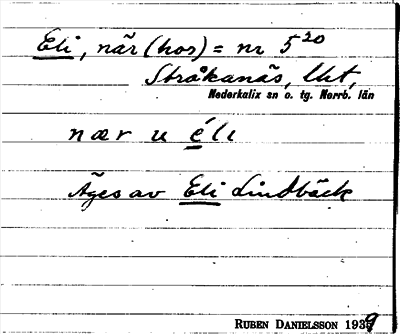 Eli, när (hos) = nr 5²⁰
Stråkanäs, lht,
Nederkalix sn o. tg. Norrb. län
nær u éli
Äges av Eli Lindbäck
RUBEN DANIELSSON 1939